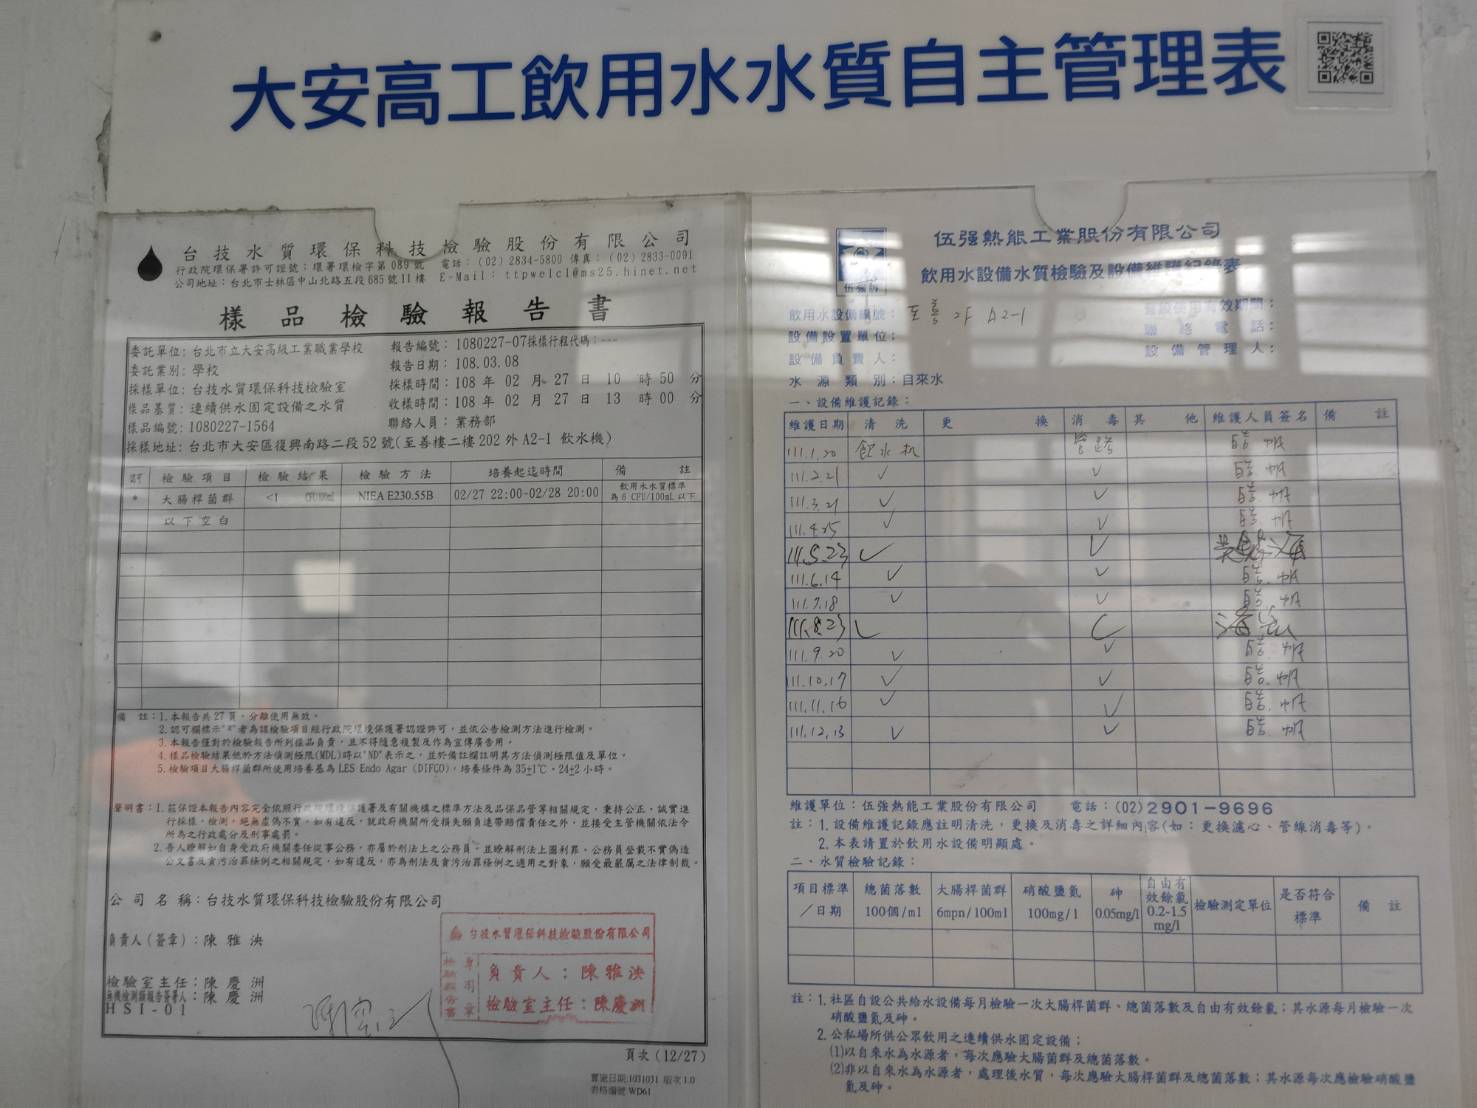 大安高工飲用水水質自主管理表
台技水質環保科技檢驗股份有限公司
行政院環保署許可證號：環署環檢字第089號 電話：(02) 2834-5800 傳真：(02) 2833-0091
公司地址：台北市士林區中山北路五段685號11樓 E-Mail：ttpwelcl@ms25.hinet.net
樣品檢驗報告書
委託單位：台北市立大安高級工業職業學校 報告編號：1080227-07採樣行程代碼：---
委託業別：學校 報告日期：108.03.08
採樣單位：台技水質環保科技檢驗室 採樣時間：108 年 02 月 27 日 10 時 50 分
樣品基質：連續供水固定設備之水質 收樣時間：108 年 02 月 27 日 13 時 00 分
樣品編號：1080227-1564 聯絡人員：業務部
採樣地址：台北市大安區復興南路二段52號(至善樓二樓202外A2-1 飲水機)
檢驗項目 檢驗結果 檢驗方法 培養起迄時間 備註
* 大腸桿菌群 <1 CFU/100ml NIEA E230.55B 02/27 22:00-02/28 20:00 飲用水水質標準為6 CFU/100mL以下
以下空白
備註：1.本報告共27頁，分離使用無效。
2.認可欄標示"*"者為該檢驗項目經行政院環境保護署認證許可，並依公告檢測方法進行檢測。
3.本報告僅對於檢驗報告所列樣品負責，且不得隨意複製及作為宣傳廣告用。
4.樣品檢驗結果低於方法偵測極限(MDL)時以"ND"表示之，並於備註欄註明其方法偵測極限值及單位。
5.檢驗項目大腸桿菌群所使用培養基為LES Endo Agar (DIFCO)，培養條件為35±1℃，24±2小時。
聲明書：1.茲保證本報告內容完全依照行政院環境保護署及有關機構之標準方法及品保品管等相關規定，秉持公正、誠實進
行採樣、檢測。絕無虛偽不實，如有違反，就政府機關所受損失願負連帶賠償責任之外，並接受主管機關依法令
所為之行政處分及刑事處罰。
2.吾人瞭解如自身受政府機關委任從事公務，亦屬於刑法上之公務員，並瞭解刑法上圖利罪、公務員登載不實偽造
公文書及貪污治罪條例之相關規定，如有違反，亦為刑法及貪污治罪條例之適用之對象，願受最嚴厲之法律制裁。
公司名稱：台技水質環保科技檢驗股份有限公司
負責人(簽章)：陳雅泱
檢驗室主任：陳慶洲
無機檢測類報告簽署人：陳慶洲
HSI-01
台技水質環保科技檢驗股份有限公司
負責人：陳雅泱
檢驗室主任：陳慶洲
頁次 (12/27)
實施日期:1031031 版次1.0
表格編號 WD61
伍强熱能工業股份有限公司
飲用水設備水質檢驗及設備維護紀錄表
飲用水設備編號：至善 2F A2-1
設備設置單位： 聯絡電話：
設備負責人： 設備管理人：
水源類別：自來水
一、設備維護記錄：
維護日期 清洗 更換 消毒 其他 維護人員簽名 備註
111.1.20 飲水机 管路
111.2.21 ✓ ✓
111.3.21 ✓ ✓
111.4.25 ✓ ✓
111.5.23 ✓ ✓
111.6.14 ✓ ✓
111.7.18 ✓ ✓
111.8.23 ✓ ✓
111.9.20 ✓ ✓
111.10.17 ✓ ✓
111.11.16 ✓ ✓
111.12.13 ✓ ✓
維護單位：伍强熱能工業股份有限公司 電話：(02)2901-9696
註：1.設備維護記錄應註明清洗、更換及消毒之詳細內容(如：更換濾心、管線消毒等)。
2.本表請置於飲用水設備明顯處。
二、水質檢驗記錄：
項目標準／日期 總菌落數100個/ml 大腸桿菌群6mpn/100ml 硝酸鹽氮100mg/l 砷0.05mg/l 自由有效餘氯0.2-1.5mg/l 檢驗測定單位 是否符合標準 備註
註：1.社區自設公共給水設備每月檢驗一次大腸桿菌群、總菌落數及自由有效餘氯；其水源每月檢驗一次
硝酸鹽氮及砷。
2.公私場所供公眾飲用之連續供水固定設備；
⑴以自來水為水源者，每次應驗大腸桿菌群及總菌落數。
⑵非以自來水為水源者，處理後水質，每次應驗大腸桿菌群及總菌落數；其水源每次應檢驗硝酸鹽
氮及砷。